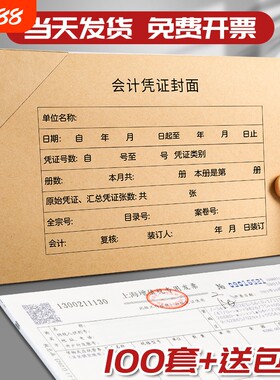 88
当天发货 免费开票
会计凭证封面
单位名称:
日期: 自 年 月 日起至 年 月 日止
凭证号数: 自 号至 号 凭证类别
册数: 本月共: 册 本册是第 册
原始凭证、汇总凭证张数: 共 张
全宗号: 目录号: 案卷号:
会计: 复核: 装订人: 年 月 日装订
1300211130
100套+送包